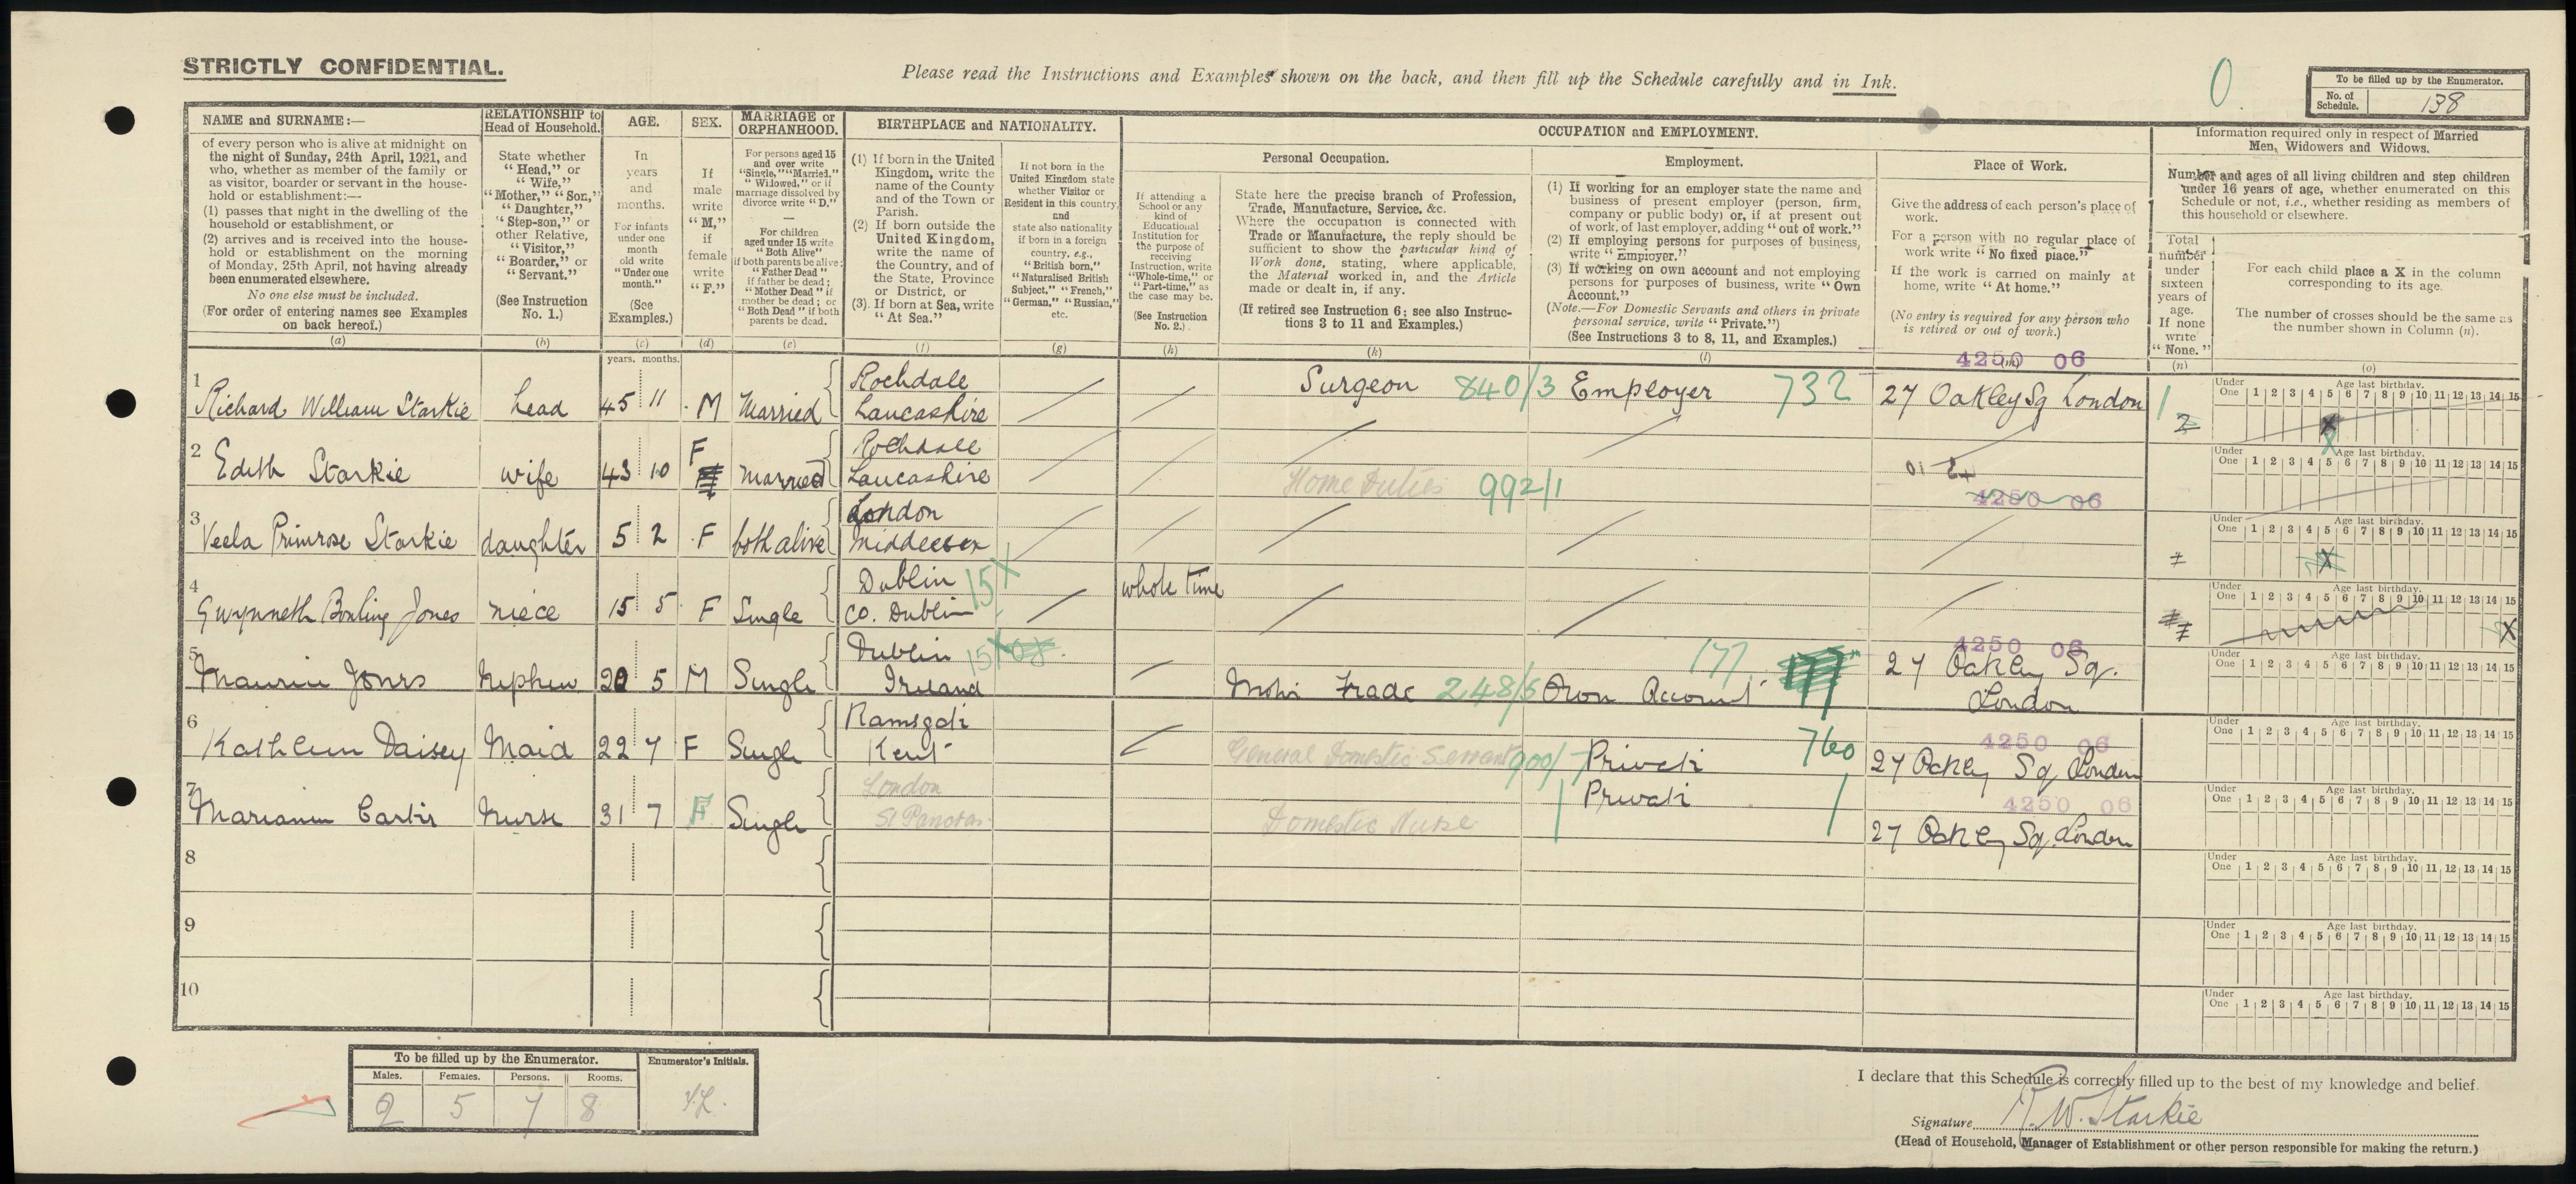 STRICTLY CONFIDENTIAL.
Please read the Instructions and Examples shown on the back, and then fill up the Schedule carefully and in Ink.
0.
To be filled up by the Enumerator.
No. of Schedule. 138
NAME and SURNAME:—
of every person who is alive at midnight on
the night of Sunday, 24th April, 1921, and
who, whether as member of the family or
as visitor, boarder or servant in the house-
hold or establishment:—
(1) passes that night in the dwelling of the
household or establishment, or
(2) arrives and is received into the house-
hold or establishment on the morning
of Monday, 25th April, not having already
been enumerated elsewhere.
No one else must be included.
(For order of entering names see Examples
on back hereof.)
(a)
RELATIONSHIP to
Head of Household.
State whether
"Head," or
"Wife,"
"Mother," "Son,"
"Daughter,"
"Step-son," or
other Relative,
"Visitor,"
"Boarder," or
"Servant."
(See Instruction
No. 1.)
(b)
AGE.
In
years
and
months.
For infants
under one
month
old write
"Under one
month."
(See
Examples.)
(c)
years. months.
SEX.
If
male
write
"M,"
if
female
write
"F."
(d)
MARRIAGE or
ORPHANHOOD.
For persons aged 15
and over write
"Single," "Married,"
"Widowed," or if
marriage dissolved by
divorce write "D."
For children
aged under 15 write
"Both Alive"
if both parents be alive;
"Father Dead"
if father be dead;
"Mother Dead" if
mother be dead; or
"Both Dead" if both
parents be dead.
(e)
BIRTHPLACE and NATIONALITY.
(1) If born in the United
Kingdom, write the
name of the County
and of the Town or
Parish.
(2) If born outside the
United Kingdom,
write the name of
the Country, and of
the State, Province
or District, or
(3). If born at Sea, write
"At Sea."
(f)
If not born in the
United Kingdom state
whether Visitor or
Resident in this country,
and
state also nationality
if born in a foreign
country. e.g.,
"British born,"
"Naturalised British
Subject," "French,"
"German," "Russian,"
etc.
(g)
OCCUPATION and EMPLOYMENT.
If attending a
School or any
kind of
Educational
Institution for
the purpose of
receiving
Instruction, write
"Whole-time," or
"Part-time," as
the case may be.
(See Instruction
No. 2.)
(h)
Personal Occupation.
State here the precise branch of Profession,
Trade, Manufacture, Service, &c.
Where the occupation is connected with
Trade or Manufacture, the reply should be
sufficient to show the particular kind of
Work done, stating, where applicable,
the Material worked in, and the Article
made or dealt in, if any.
(If retired see Instruction 6; see also Instruc-
tions 3 to 11 and Examples.)
(k)
Employment.
(1) If working for an employer state the name and
business of present employer (person, firm,
company or public body) or, if at present out
of work, of last employer, adding "out of work."
(2) If employing persons for purposes of business,
write "Employer."
(3) If working on own account and not employing
persons for purposes of business, write "Own
Account."
(Note.—For Domestic Servants and others in private
personal service, write "Private.")
(See Instructions 3 to 8, 11, and Examples.)
(l)
Place of Work.
Give the address of each person's place of
work.
For a person with no regular place of
work write "No fixed place."
If the work is carried on mainly at
home, write "At home."
(No entry is required for any person who
is retired or out of work.)
(m)
Information required only in respect of Married
Men, Widowers and Widows.
Number and ages of all living children and step children
under 16 years of age, whether enumerated on this
Schedule or not, i.e., whether residing as members of
this household or elsewhere.
Total
number
under
sixteen
years of
age.
If none
write
"None."
(n)
For each child place a X in the column
corresponding to its age.
The number of crosses should be the same as
the number shown in Column (n).
(o)
4250 06
1 Richard William Starkie head 45 11 M Married Rochdale Lancashire Surgeon 840/3 Employer 732 27 Oakley Sq London 1
Under One Age last birthday. 1 2 3 4 5 6 7 8 9 10 11 12 13 14 15
2 Edith Starkie wife 43 10 F married Rochdale Lancashire Home Duties 992/1
4250 06
Under One Age last birthday. 1 2 3 4 5 6 7 8 9 10 11 12 13 14 15
3 Veela Primrose Starkie daughter 5 2 F both alive London Middlesex
Under One Age last birthday. 1 2 3 4 5 6 7 8 9 10 11 12 13 14 15
4 Gwynneth Bowling Jones niece 15 5 F Single Dublin Co. Dublin 15X whole time
Under One Age last birthday. 1 2 3 4 5 6 7 8 9 10 11 12 13 14 15
4250 06
5 Maurice Jones Nephew 20 5 M Single Dublin Ireland 15X Motor Trade 248/5 Own Account 177 27 Oakley Sq. London
Under One Age last birthday. 1 2 3 4 5 6 7 8 9 10 11 12 13 14 15
4250 06
6 Kathleen Daisey Maid 22 7 F Single Ramsgate Kent General Domestic Servant 900/7 Private 760 27 Oakley Sq London
Under One Age last birthday. 1 2 3 4 5 6 7 8 9 10 11 12 13 14 15
4250 06
7 Marianne Carter Nurse 31 7 F Single London St Pancras. Domestic Nurse Private 27 Oakley Sq. London
Under One Age last birthday. 1 2 3 4 5 6 7 8 9 10 11 12 13 14 15
8
Under One Age last birthday. 1 2 3 4 5 6 7 8 9 10 11 12 13 14 15
9
Under One Age last birthday. 1 2 3 4 5 6 7 8 9 10 11 12 13 14 15
10
Under One Age last birthday. 1 2 3 4 5 6 7 8 9 10 11 12 13 14 15
To be filled up by the Enumerator.
Males. Females. Persons. Rooms.
2 5 7 8
Enumerator's Initials.
I declare that this Schedule is correctly filled up to the best of my knowledge and belief.
Signature R.W. Starkie
(Head of Household, Manager of Establishment or other person responsible for making the return.)